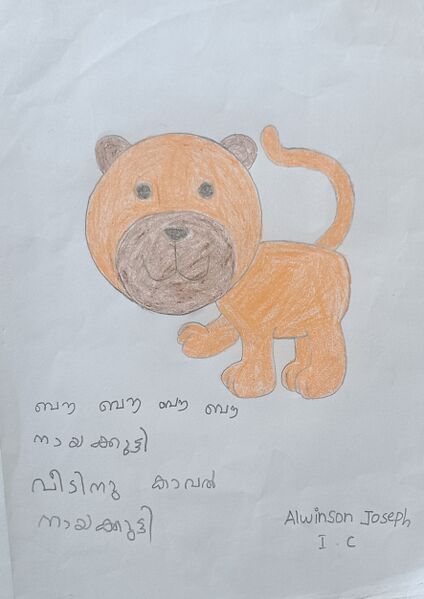 ബൗ ബൗ ബൗ ബൗ
നായക്കുട്ടി
വീടിനു കാവൽ
നായക്കുട്ടി
Alwinson Joseph
I.C